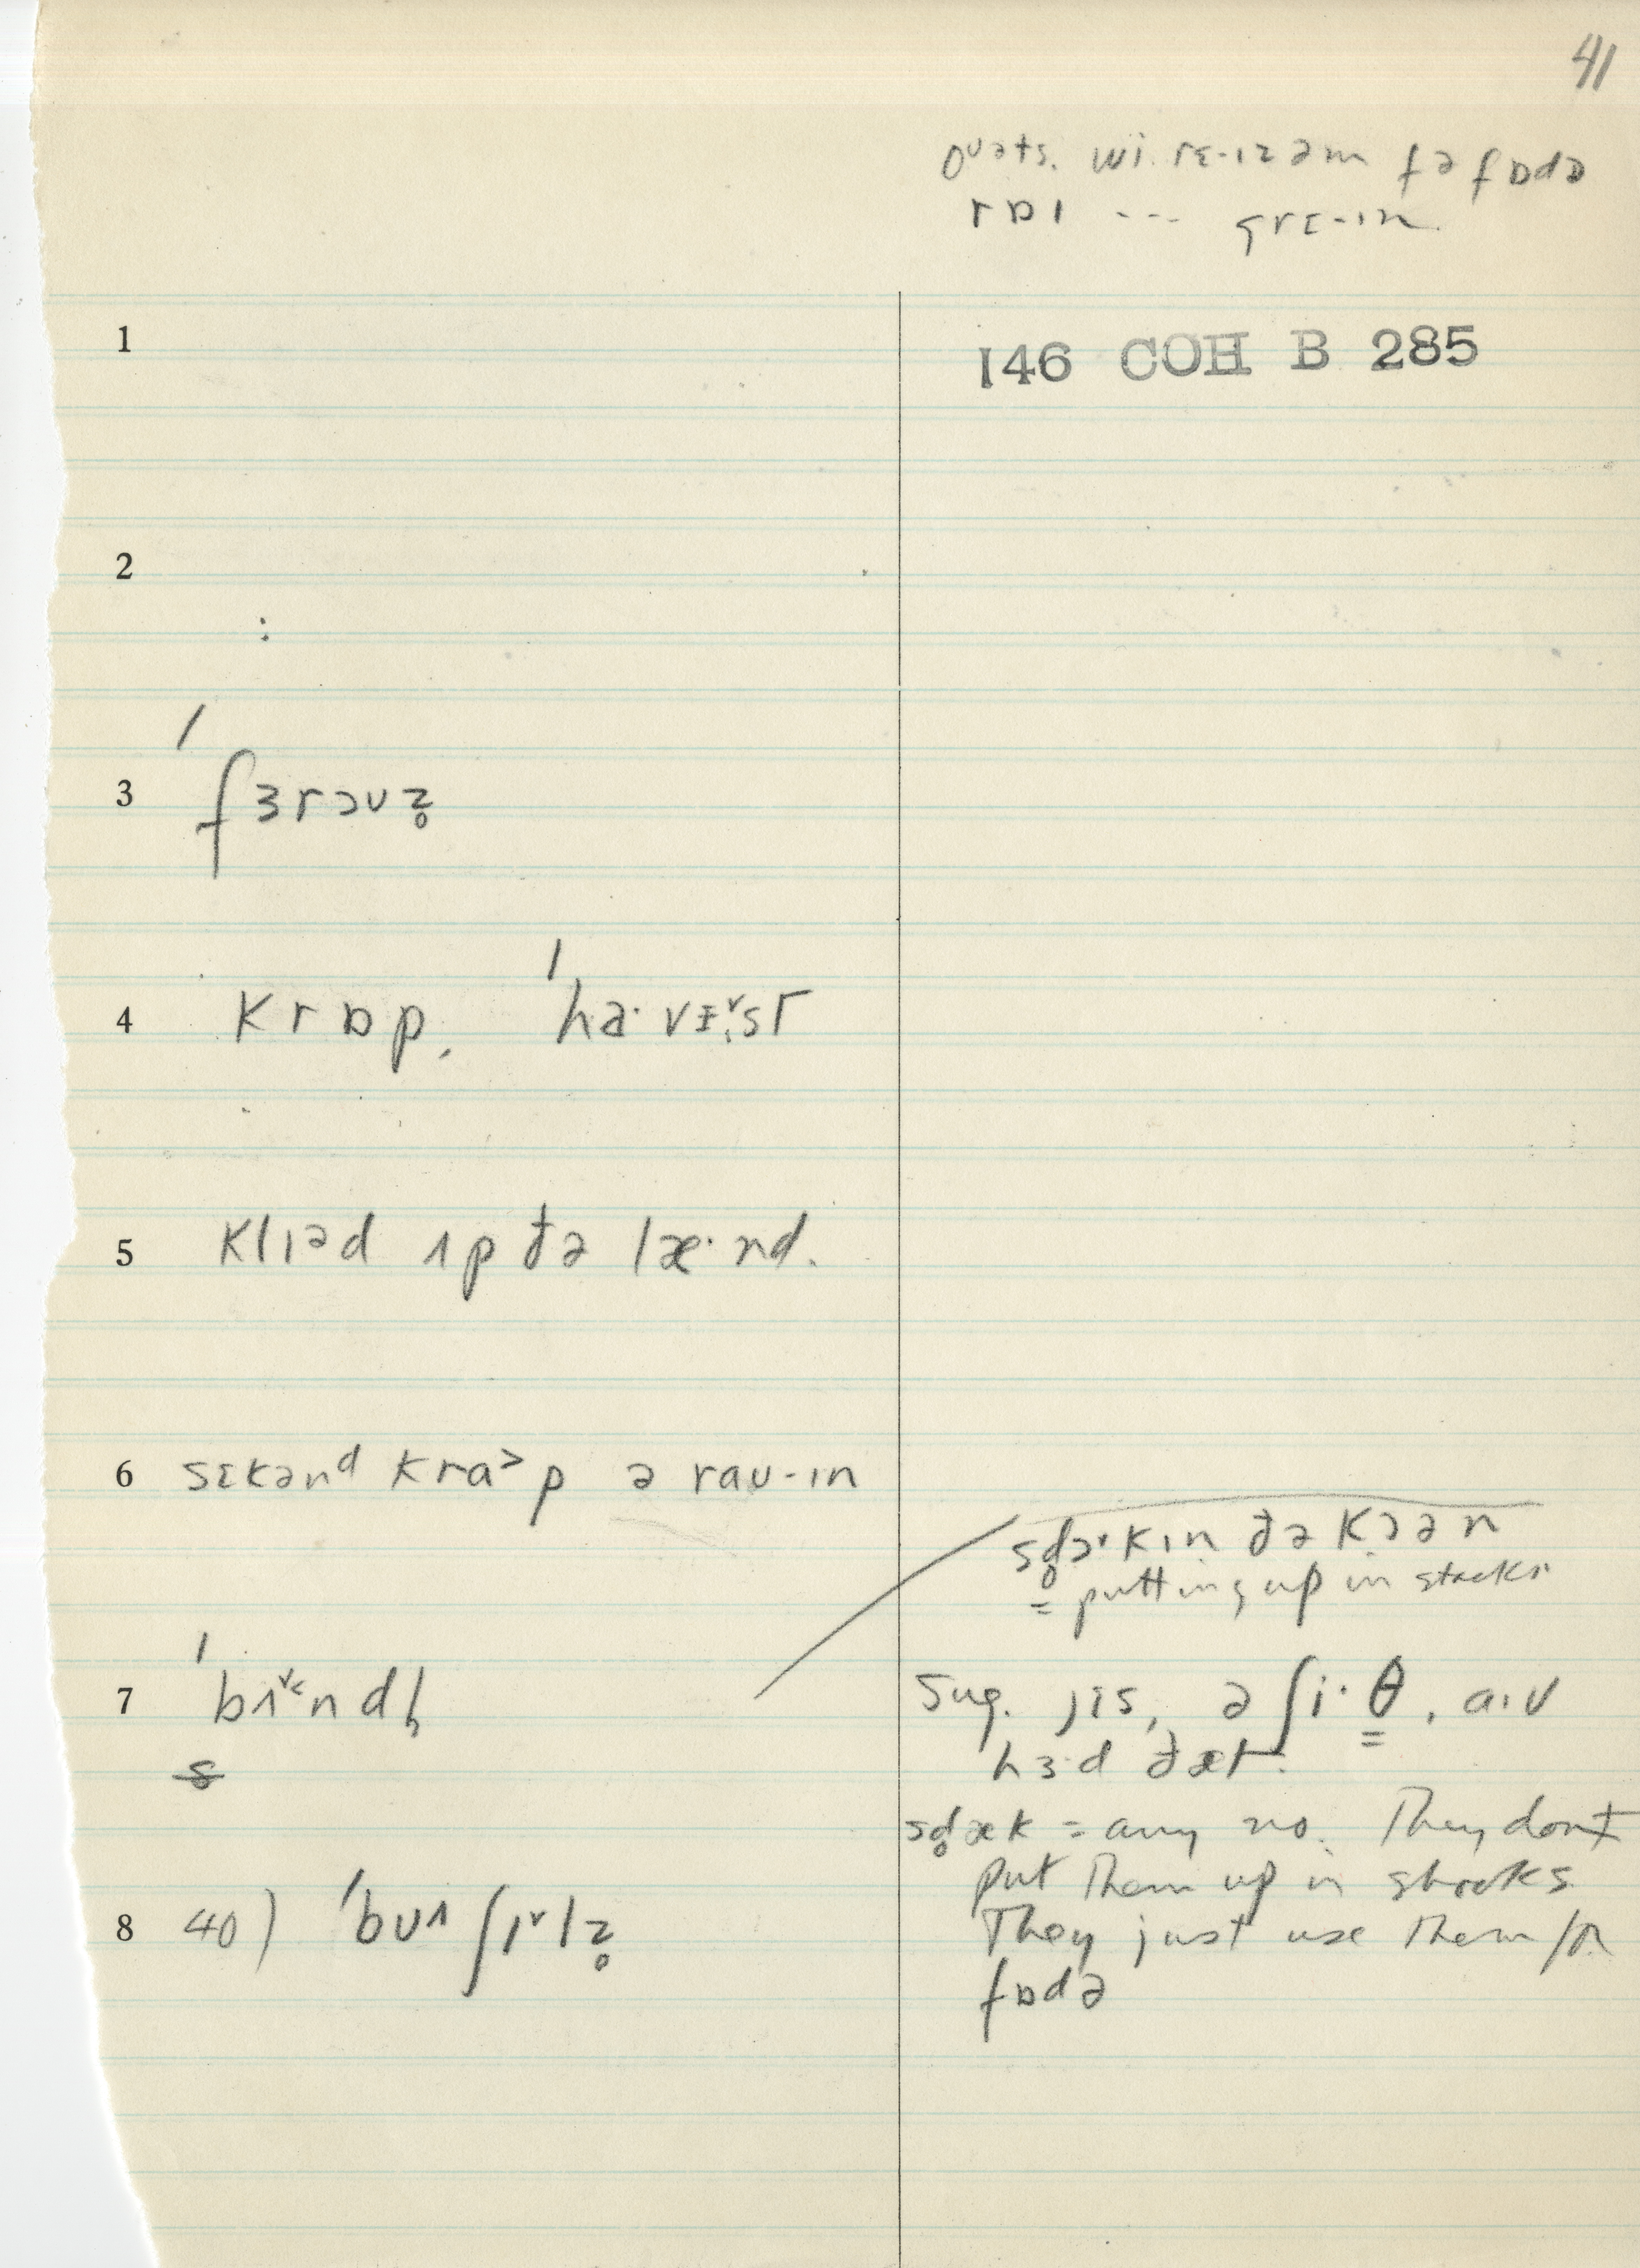 41
oᴜəts. wi. rɛ-ɪz əm fə fɒdə
rɒɪ --- grɛ-ɪn.
1
146 COH B 285
2
:
3 ˈfɜrəʊz̥
4 krɒp, ˈha·vɨ˅st
5 klɪəd ʌp ðə læ·nd.
6 sɛkənᵈ kra˃p ə raʊ-ɪn
sd̥ɔ·kɪn ðə kɔən
= putting up in stacks.
7 ˈbʌ˅˂ndl̩
s
Sug. jɪs, ə ʃi·θ, a·ɪv
hɜ·d ðæt.
sd̥æk = any no. They don't
put them up in stacks
They just use them for
fɒdə
8 40) ˈbʊʌʃɪ˅lz̥